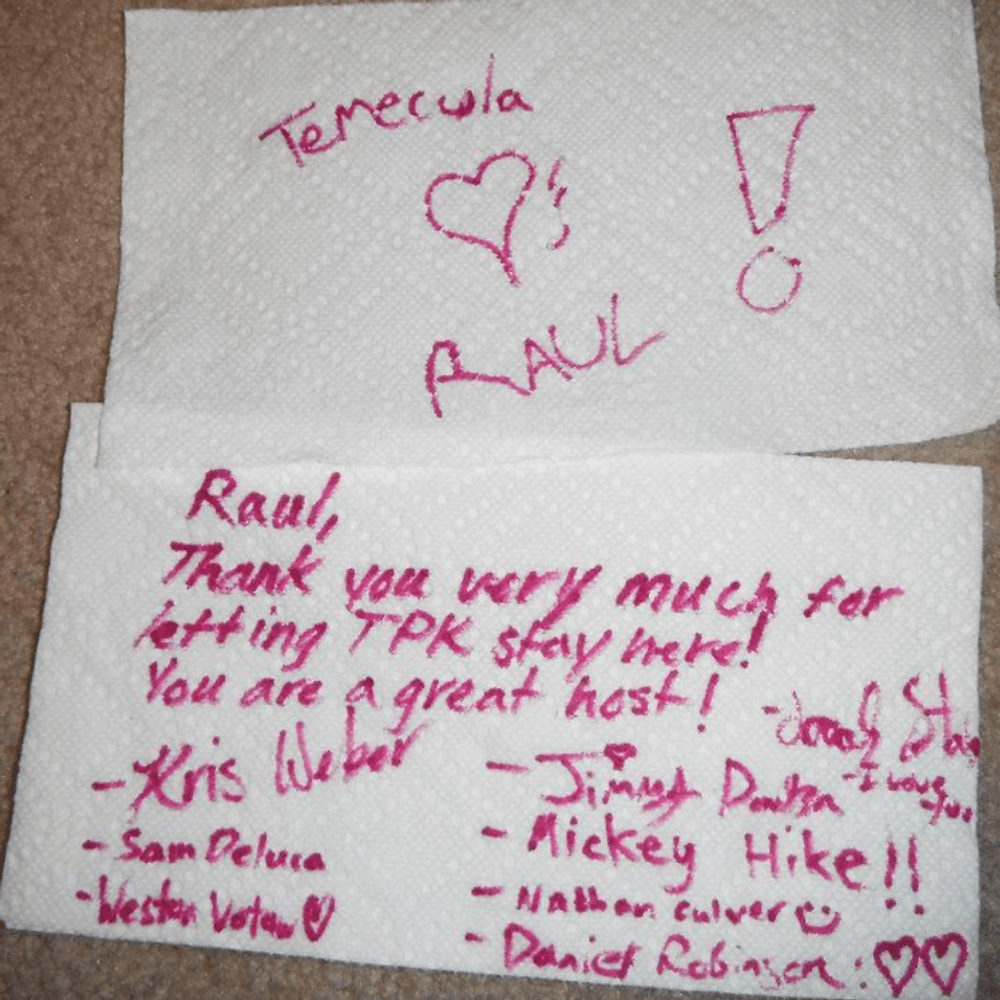 Temecula
♥'s !
RAUL
Raul,
Thank you very much for
letting TPK stay here!
You are a great host!
- Kris Weber
- Sam Deluca
- Weston Votaw ♥
- Jimmy
- I love you
- Mickey Hike!!
- Nathan Culver
- Daniel Robinson: ♥♥